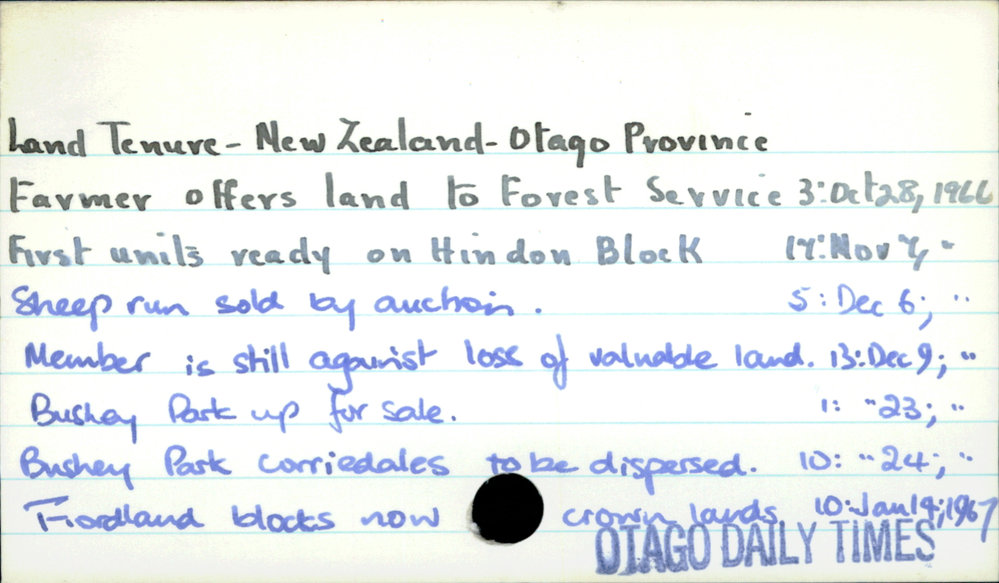 Land Tenure - New Zealand - Otago Province
Farmer offers land to Forest Service 3: Oct 28, 1966
First units ready on Hindon Block 17: Nov 7, "
Sheep run sold by auction. 5: Dec 6; "
Member is still against loss of valuable land. 13: Dec 9; "
Bushey Park up for sale. 1: " 23; "
Bushey Park corriedales to be dispersed. 10: " 24; "
Fiordland blocks now crown lands 10: Jan 14; 1967
OTAGO DAILY TIMES